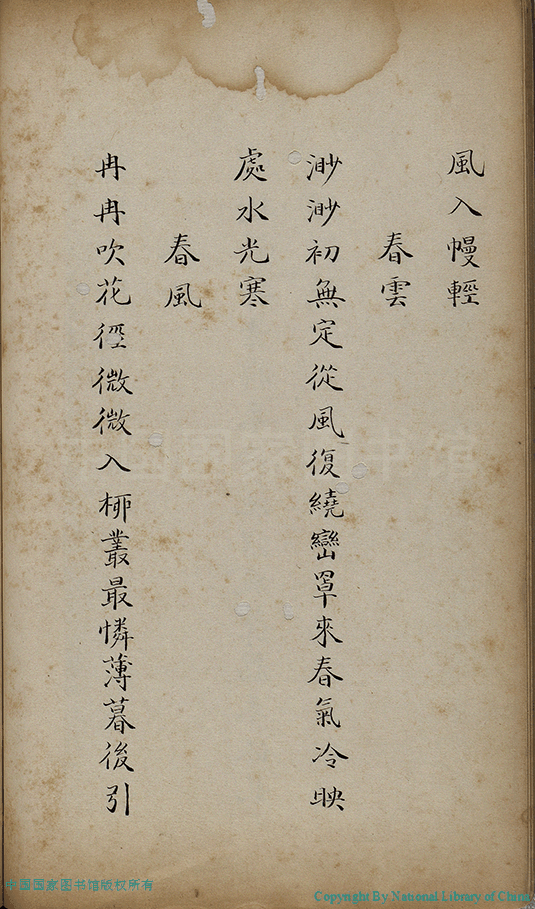 風入幔輕
春雲
渺渺初無定從風復繞巒罩來春氣冷映
處水光寒
春風
冉冉吹花徑微微入栁叢最憐薄暮後引
中国国家图书馆
中国国家图书馆版权所有
Copyright By National Library of China